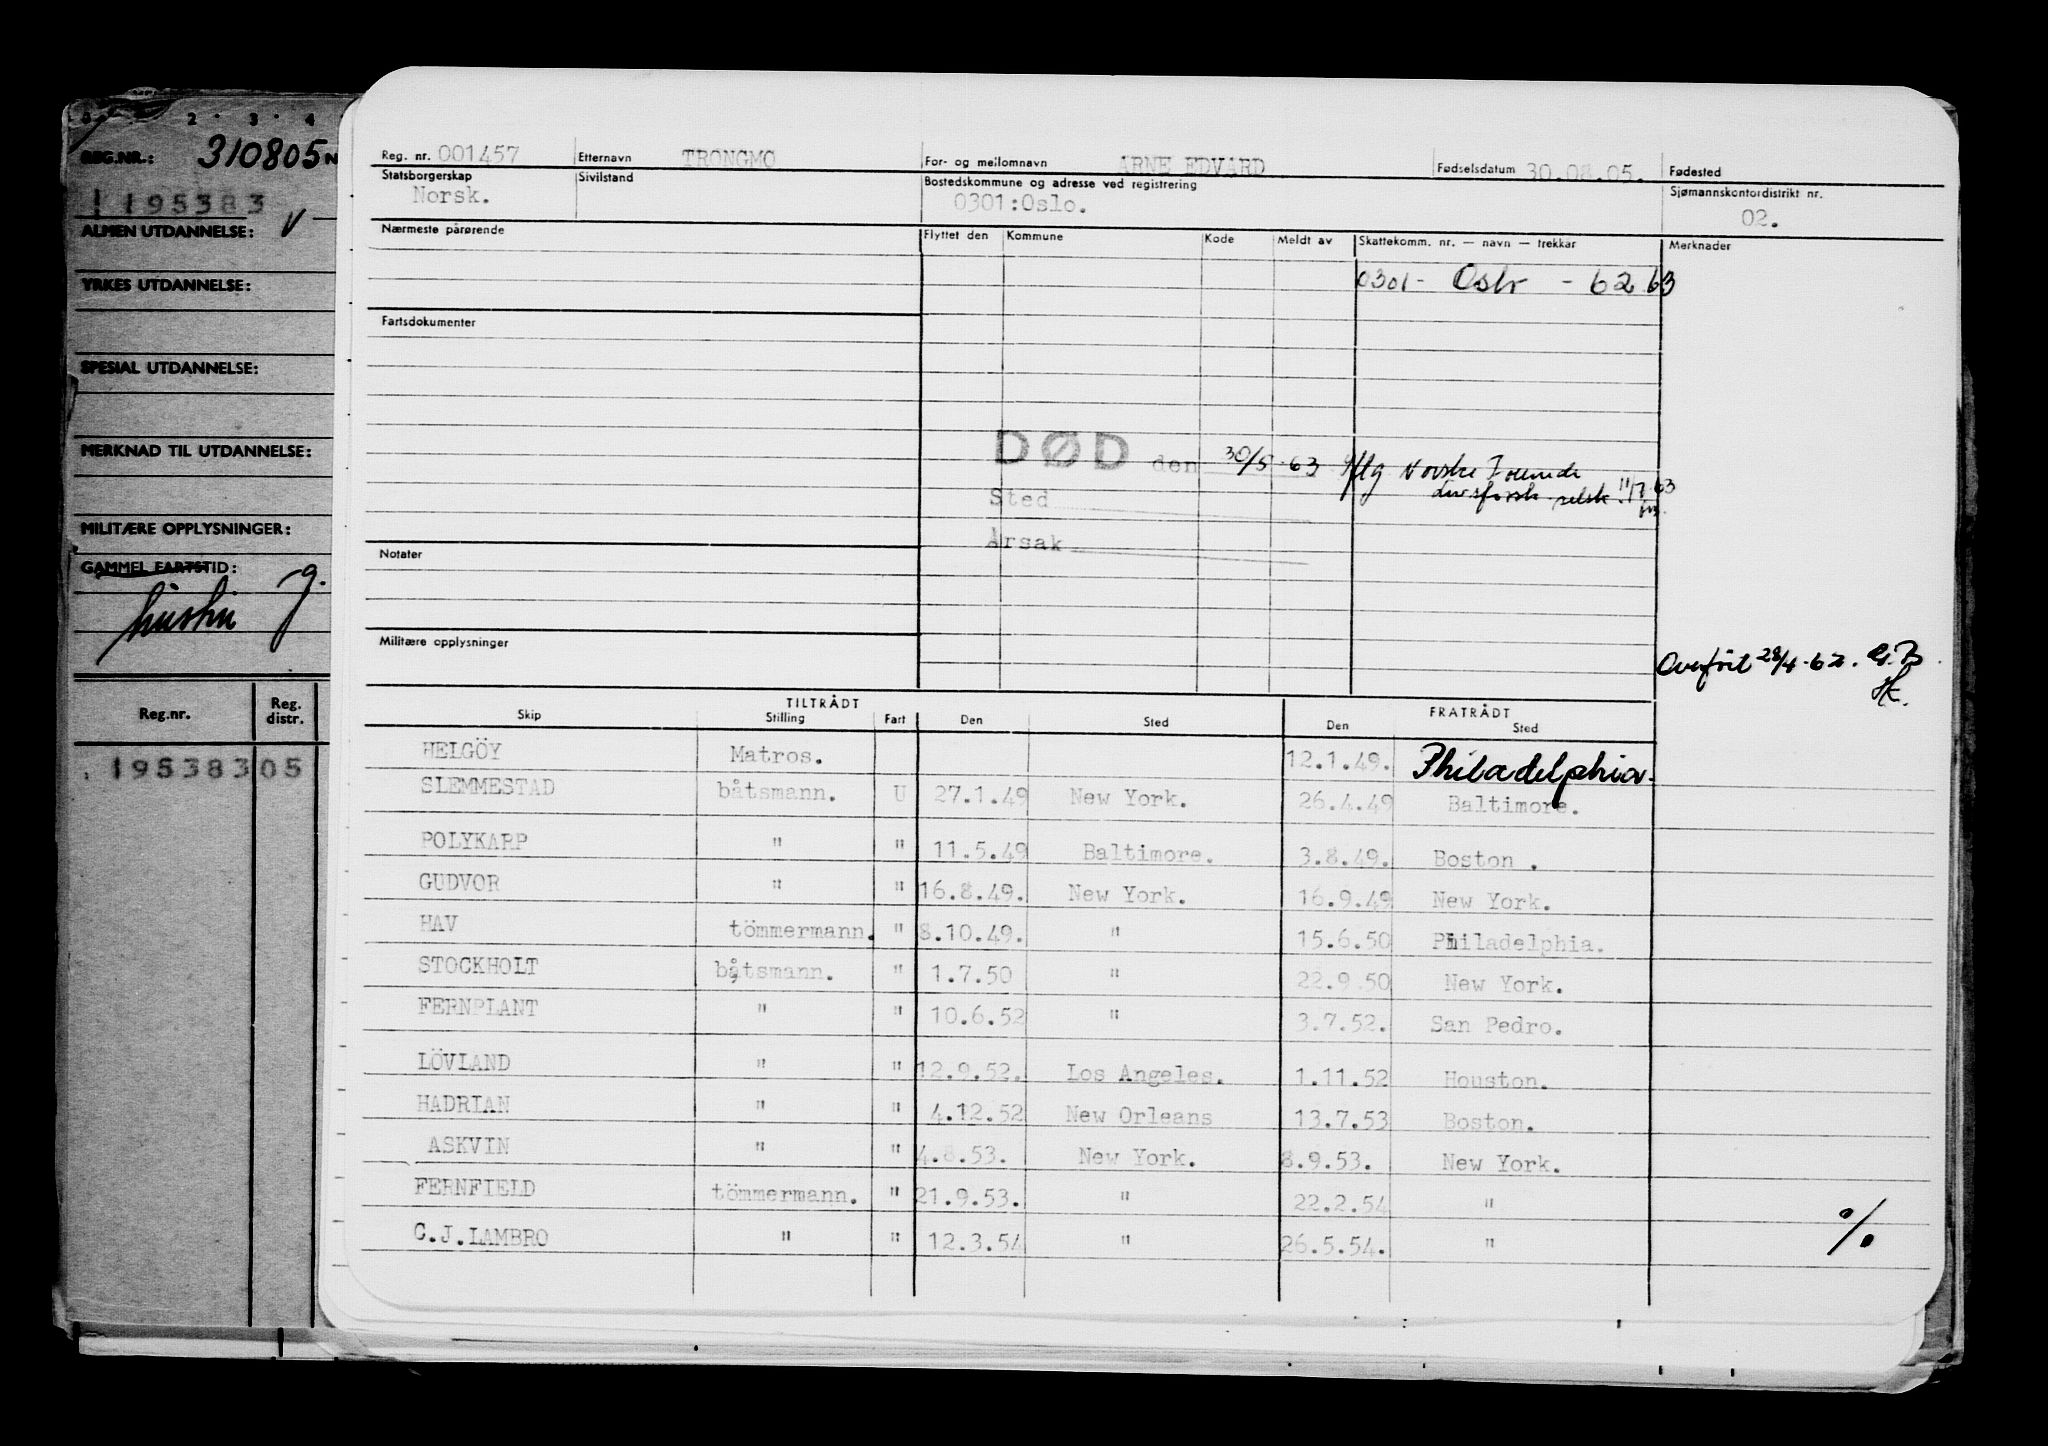 2 · 3 · 4
REG.NR.: 310805 N
1195383
ALMEN UTDANNELSE: V
YRKES UTDANNELSE:
SPESIAL UTDANNELSE:
MERKNAD TIL UTDANNELSE:
MILITÆRE OPPLYSNINGER:
GAMMEL FARTSTID:
Reg.nr. Reg. distr.
195383 05
Reg. nr. 001457 Etternavn TRONGMO For- og mellomnavn ARNE EDVARD Fødselsdatum 30.08.05. Fødested
Statsborgerskap Sivilstand Bostedskommune og adresse ved registrering Sjømannskontordistrikt nr.
Norsk. 0301:Oslo. 02.
Nærmeste pårørende Flyttet den Kommune Kode Meldt av Skattekomm. nr. — navn — trekkar Merknader
0301- Oslo - 62 63
Fartsdokumenter
DØD den 30/5-63 iflg Norske
Sted 11/7.63
Årsak
Notater
Militære opplysninger
Overført 28/4-62.
TILTRÅDT FRATRÅDT
Skip Stilling Fart Den Sted Den Sted
HELGÖY Matros. 12.1.49. Philadelphia.
SLEMMESTAD båtsmann. U 27.1.49 New York. 26.4.49 Baltimore.
POLYKARP " " 11.5.49 Baltimore. 3.8.49. Boston .
GUDVOR " " 16.8.49. New York. 16.9.49 New York.
HAV tömmermann. " 8.10.49. " 15.6.50 Philadelphia.
STOCKHOLT båtsmann. " 1.7.50 " 22.9.50 New York.
FERNPLANT " " 10.6.52 " 3.7.52. San Pedro.
LÖVLAND " " 12.9.52. Los Angeles. 1.11.52 Houston.
HADRIAN " " 4.12.52 New Orleans 13.7.53 Boston.
ASKVIN " " 4.8.53. New York. 8.9.53. New York.
FERNFIELD tömmermann. " 21.9.53. " 22.2.54 "
C.J.LAMBRO " " 12.3.54 " 26.5.54. "
%